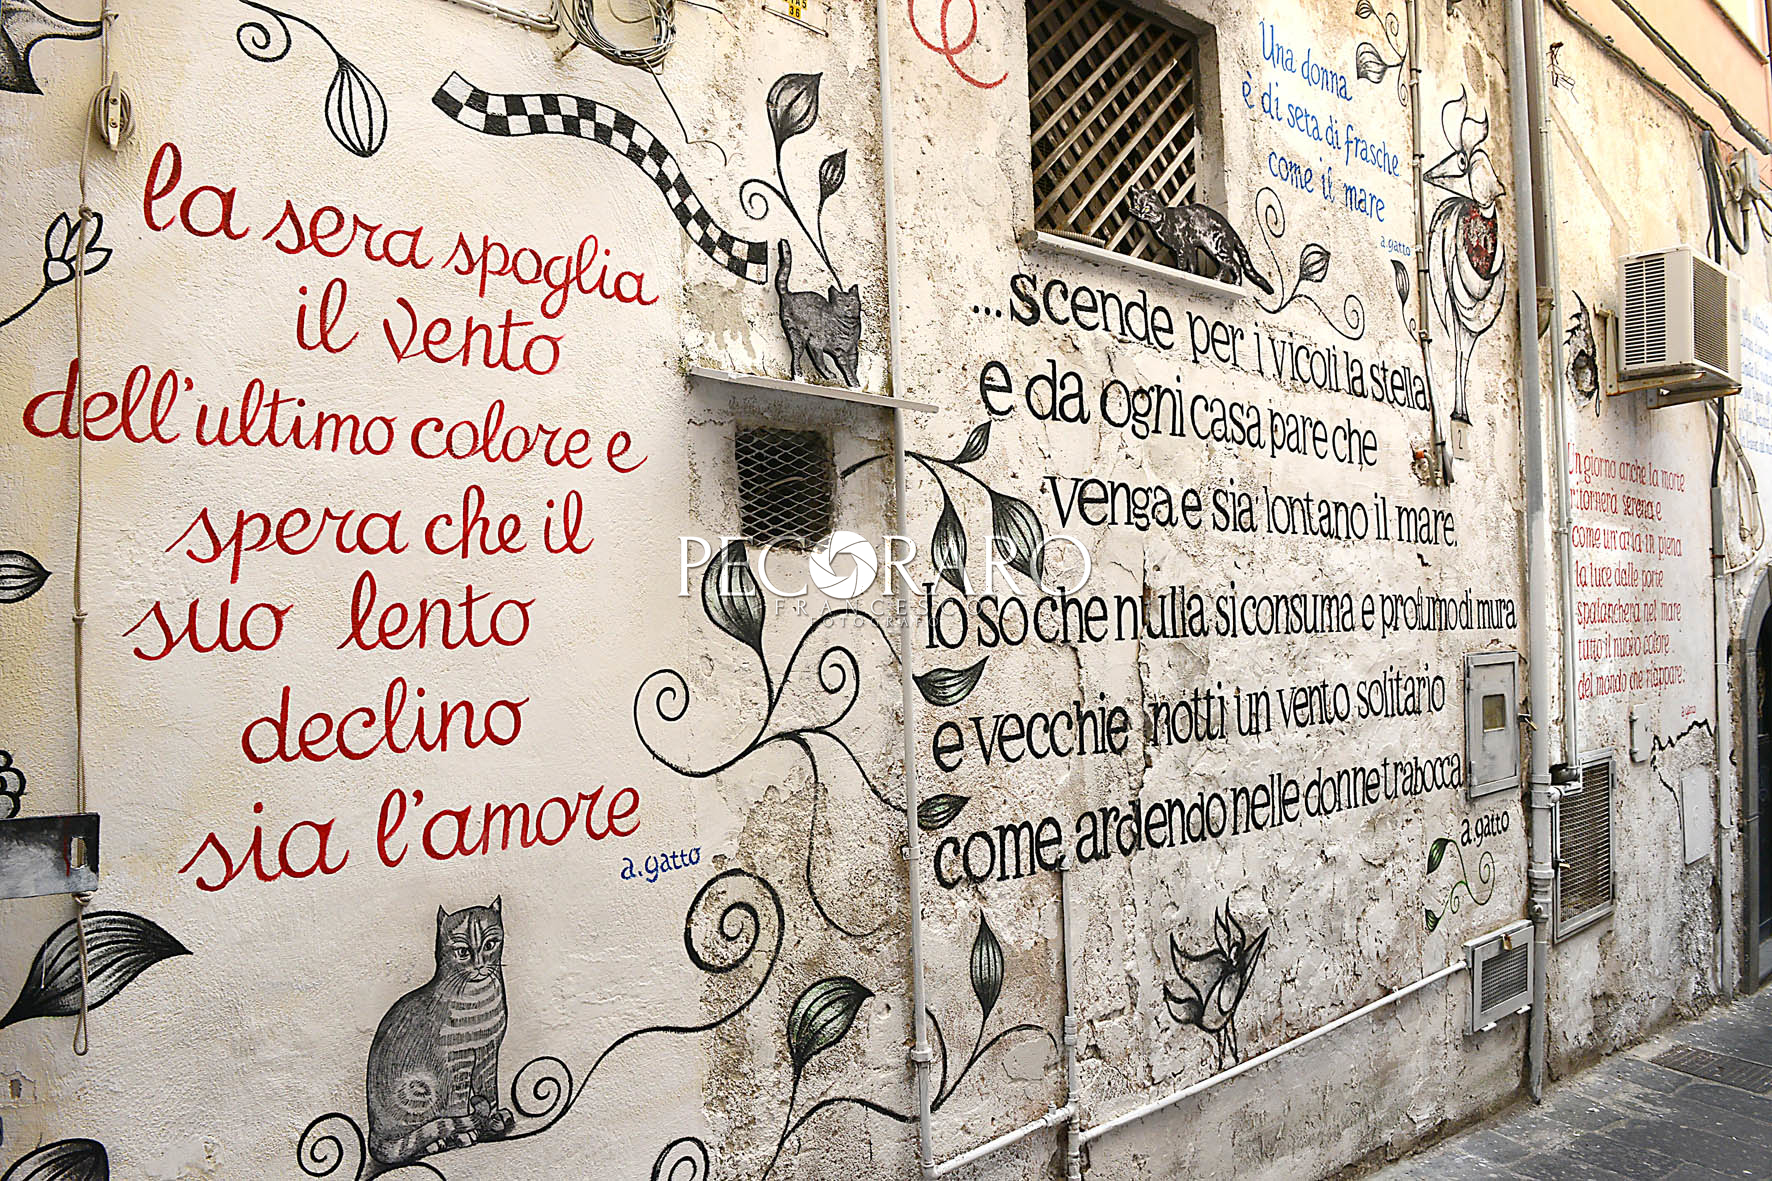 la sera spoglia
il vento
dell'ultimo colore e
spera che il
suo lento
declino
sia l'amore
a.gatto
Una donna
è di seta di frasche
come il mare
a.gatto
...scende per i vicoli la stella
e da ogni casa pare che
venga e sia lontano il mare.
Io so che nulla si consuma e profumo di mura
e vecchie notti un vento solitario
come ardendo nelle donne trabocca
a.gatto
Un giorno anche la morte
ritornerà serena e
come un'aria in piena
la luce dalle porte
spalancherà nel mare
tutto il nuovo colore
del mondo che riappare:
a.gatto
PECORARO
FRANCESCO
FOTOGRAFO